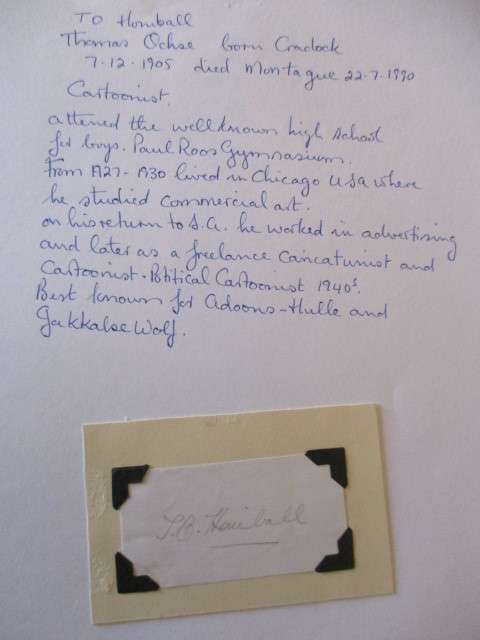 TO Honiball
Thomas Ochse born Cradock
7.12.1905 died Montague 22.7.1990
Cartoonist.
attened the well known high school
for boys. Paul Roos Gymnasium.
from 1927-1930 lived in Chicago USA where
he studied commercial art.
on his return to S.A. he worked in advertising
and later as a freelance caricaturist and
Cartoonist. Political Cartoonist 1940s.
Best known for Adoons-Hulle and
Jakkalse Wolf.
T.O. Honiball